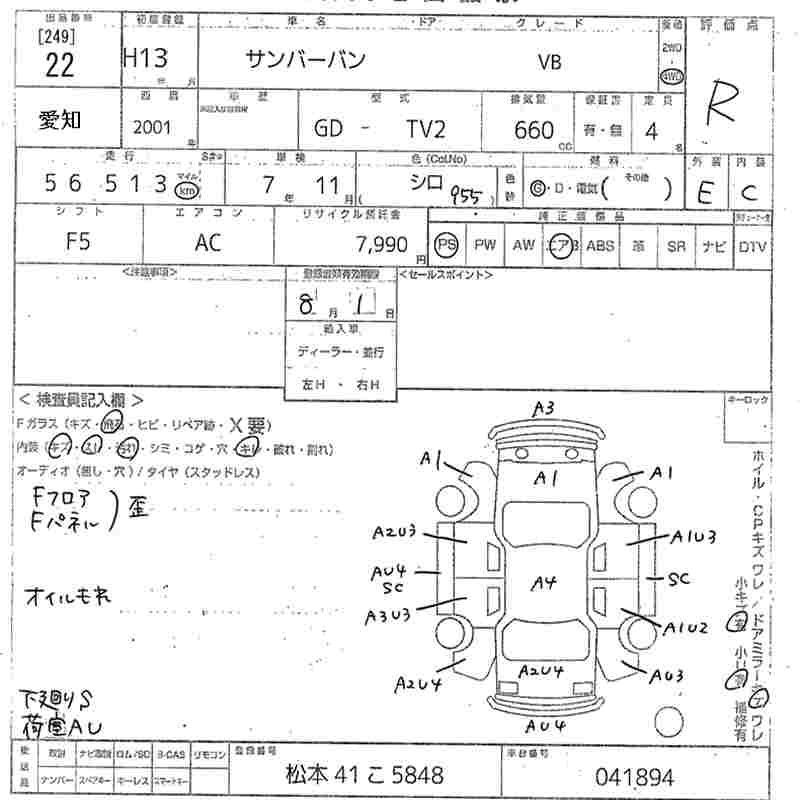 出品番号 初度登録 車名 ・ドア グレード 装備 評価点
[249]
22 H13 年 月 サンバーバン VB 2WD ・ 4WD R
愛知 2001 年 型式 GD - TV2 排気量 660 CC 保証書 有・無 定員 4 名
走行 車検 色 (Col.No) 燃料 外装 内装
56513 マイル km 7年 11月 シロ 955 色替 G・D・電気( その他 ) E C
シフト エアコン リサイクル預託金 純正装備品
F5 AC 7,990 円 PS PW AW エアB ABS 革 SR ナビ DTV
<注意事項> 登録書類有効期限 <セールスポイント>
8月 1日
輸入車
ディーラー・並行
左H ・ 右H
<検査員記入欄> キーロック
Fガラス (キズ・飛石・ヒビ・リペア跡・X要)
内装 (キズ・スレ・汚れ・シミ・コゲ・穴・キレ・破れ・割れ)
オーディオ (無し・穴) / タイヤ (スタッドレス)
Fフロア
Fパネル ) 歪
オイルもれ
下廻りS
荷室AU
A3
A1 A1 A1
A2U3 A1U3
AU4 SC A4 SC
A3U3 A1U2
A2U4 A2U4 AU3
AU4
ホイル・CPキズワレ/ドアミラーキズワレ
小キズ有 小凹有 補修有
後送品 取説 ナビ取説 ロム/SD B-CAS リモコン 登録番号 車台番号
ナンバー スペアキー キーレス スマートキー 松本 41 こ 5848 041894